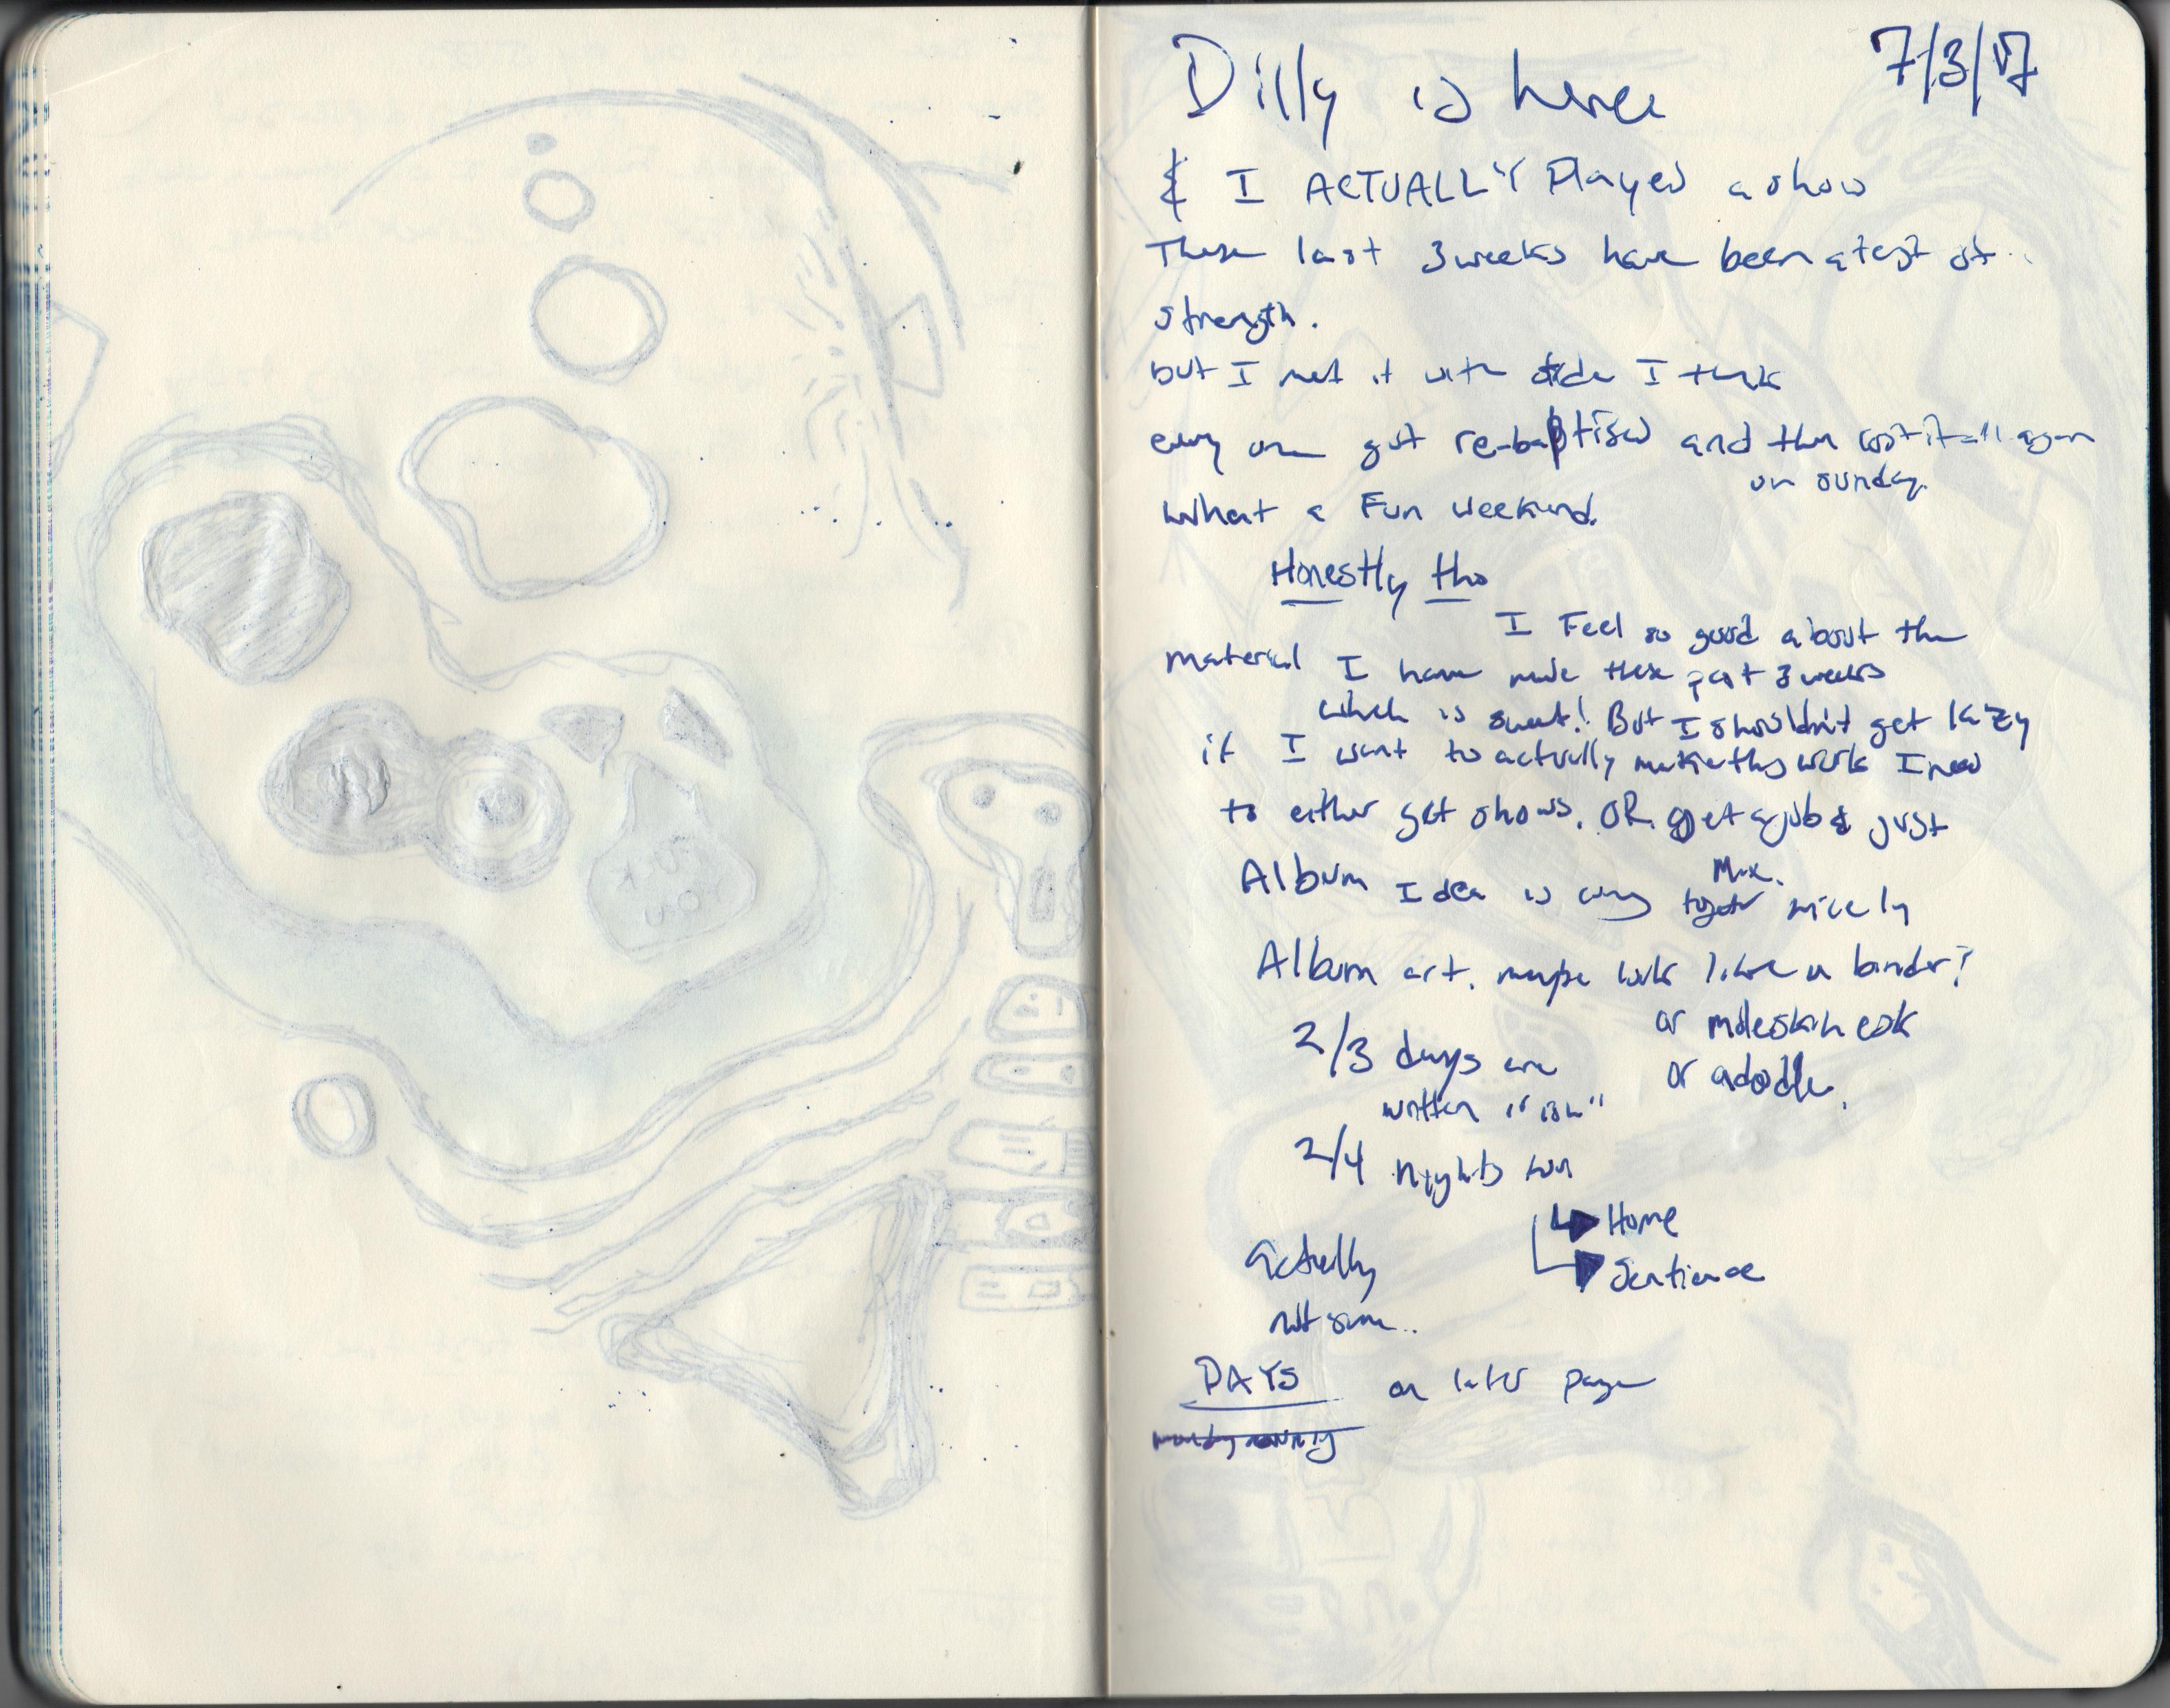 7/3/17
Dilly is here
& I ACTUALLY Played a show
These last 3 weeks have been a test of
strength.
but I met it with I think
every one got re-baptised and then lost it all again
on sunday.
What a Fun weekend.
Honestly tho
I Feel so good about the
material I have made these past 3 weeks
which is sweet! But I shouldn't get lazy
if I want to actually make this work I need
to either get shows. OR get a job & just
Mix.
Album Idea is coming together nicely
Album art. maybe looks like a binder?
or moleskin esk
2/3 days are
or a doodle.
written
2/4 Nights are
Home
Sentience
actually
not sure..
DAYS on later page
FUCK
YOU